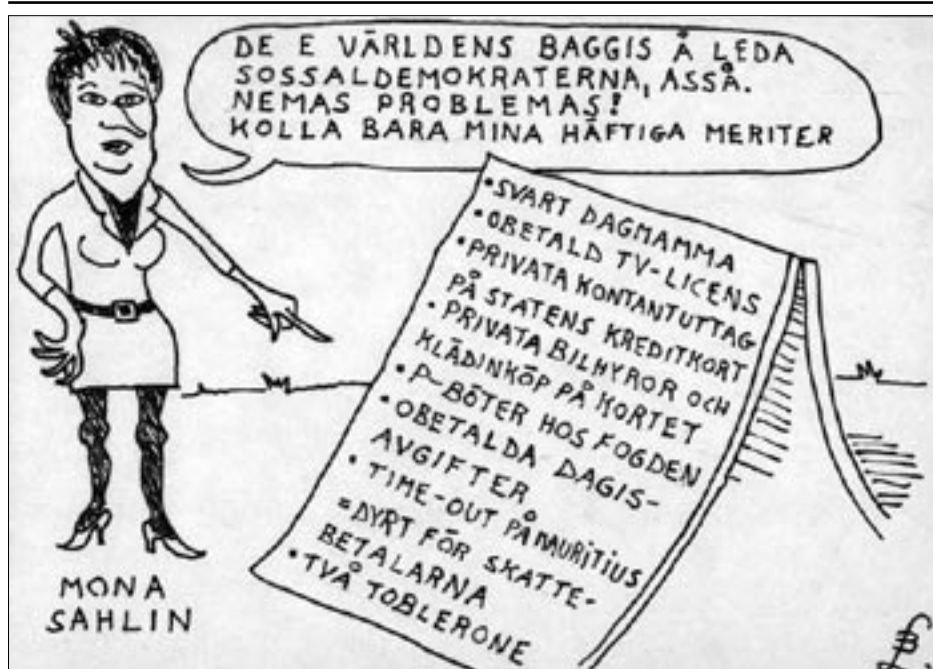 DE E VÄRLDENS BAGGIS Å LEDA
SOSSALDEMOKRATERNA, ASSÅ.
NEMAS PROBLEMAS!
KOLLA BARA MINA HÄFTIGA MERITER
• SVART DAGMAMMA
• OBETALD TV-LICENS
• PRIVATA KONTANTUTTAG
PÅ STATENS KREDITKORT
• PRIVATA BILHYROR OCH
KLÄDINKÖP PÅ KORTET
• P-BÖTER HOS FOGDEN
• OBETALDA DAGIS-
AVGIFTER
• TIME-OUT PÅ MAURITIUS
= DYRT FÖR SKATTE-
BETALARNA
• TVÅ TOBLERONE
MONA
SAHLIN